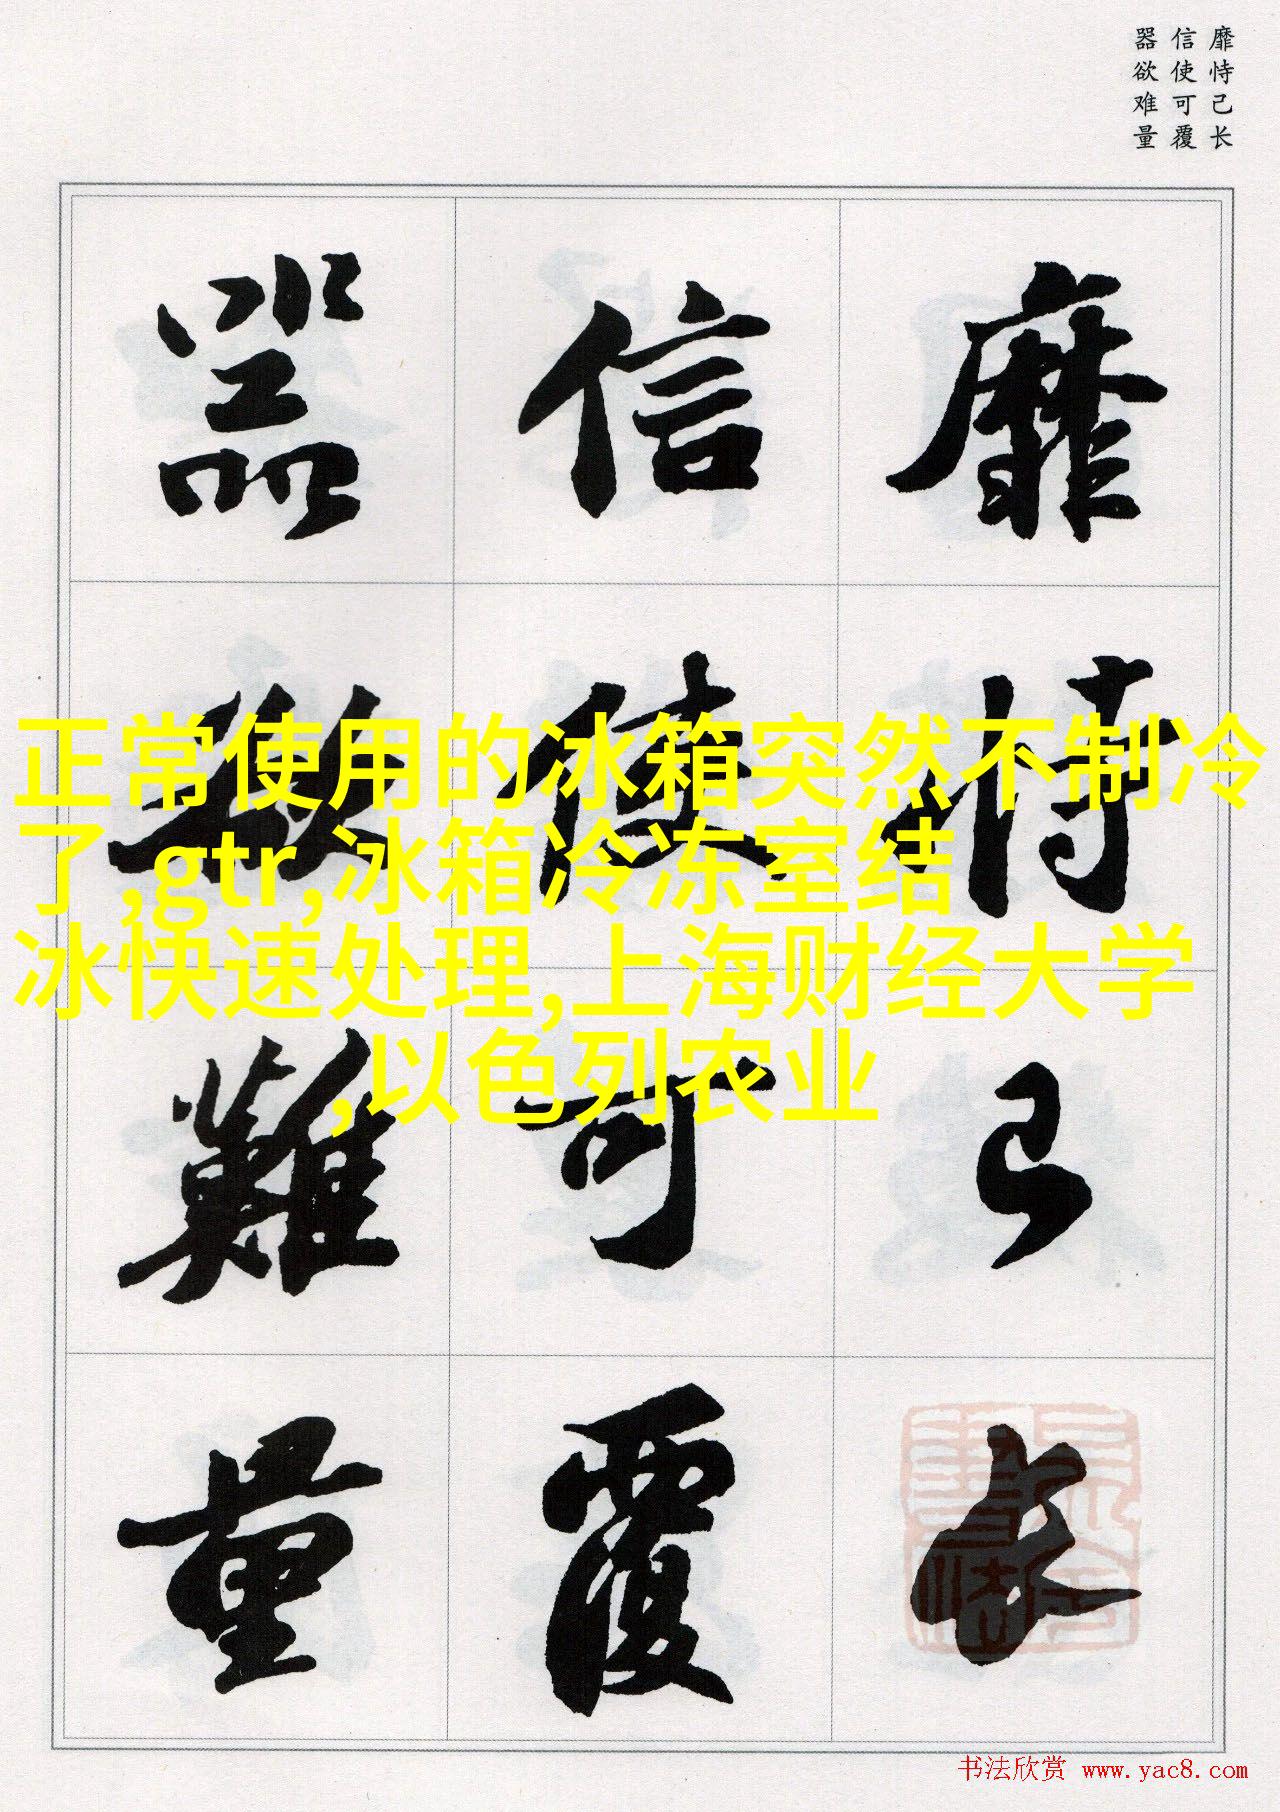 靡恃己长
信使可覆
器欲难量
靡恃己长
信使可覆
器欲難量
正常使用的冰箱突然不制冷
了,gtr,冰箱冷冻室结
冰快速处理,上海财经大学
,以色列农业
书法欣赏 www.yac8.com